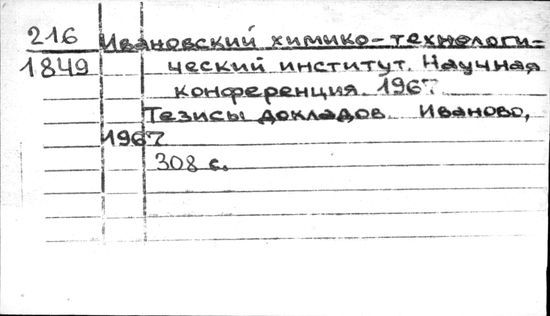 216 Ивановский химико-технологи-
1849 ческий институт. Научная
конференция. 1967
Тезисы докладов. Иваново,
1967
308 с.